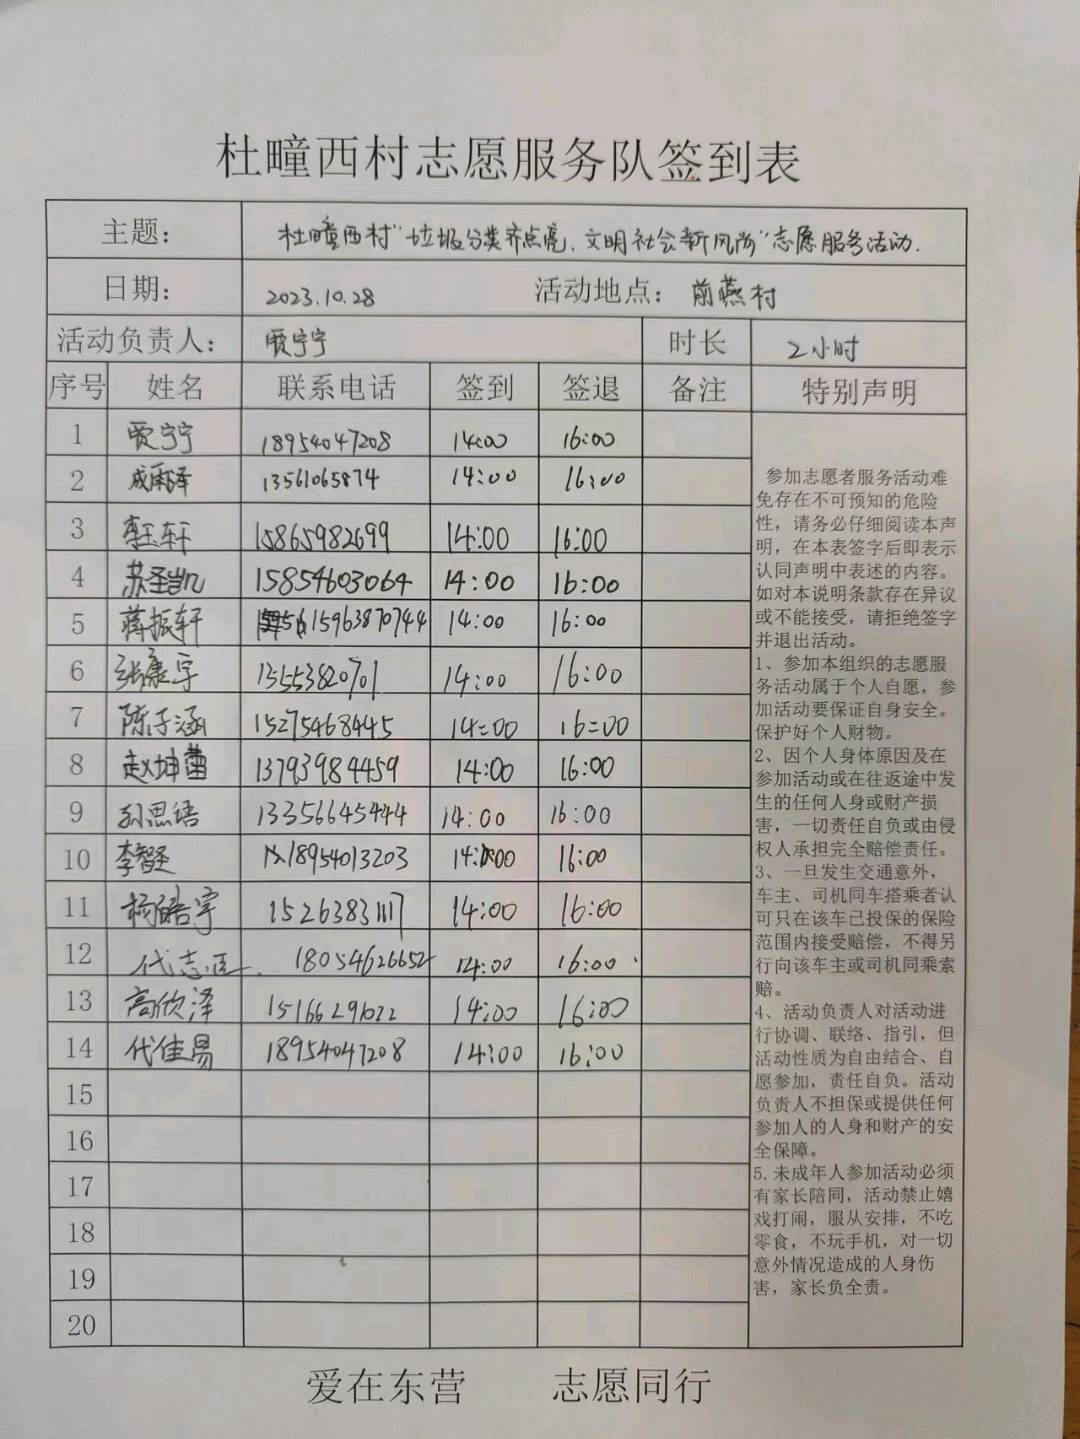 杜疃西村志愿服务队签到表
主题： 杜疃西村"垃圾分类齐点亮.文明社会新风尚"志愿服务活动.
日期： 2023.10.28 活动地点： 前燕村
活动负责人： 贾宁宁 时长 2小时
序号 姓名 联系电话 签到 签退 备注 特别声明
1 贾宁宁 18954047208 14:00 16:00
2 13561065874 14:00 16:00
3 李玉轩 15865982699 14:00 16:00
4 苏圣凯 15854603064 14:00 16:00
5 蒋振轩 15963870744 14:00 16:00
6 张康宇 13553820701 14:00 16:00
7 陈子涵 15275468445 14=00 16=00
8 赵坤蕾 13793984459 14:00 16:00
9 孙思语 13356645444 14:00 16:00
10 李智圣 18954013203 14:00 16:00
11 杨皓宇 15263831117 14:00 16:00
12 代志 18054626652 14:00 16:00
13 高欣泽 15166291022 14:00 16:00
14 代佳易 18954047208 14:00 16:00
15
16
17
18
19
20
参加志愿者服务活动难
免存在不可预知的危险
性，请务必仔细阅读本声
明，在本表签字后即表示
认同声明中表述的内容。
如对本说明条款存在异议
或不能接受，请拒绝签字
并退出活动。
1、参加本组织的志愿服
务活动属于个人自愿，参
加活动要保证自身安全。
保护好个人财物。
2、因个人身体原因及在
参加活动或在往返途中发
生的任何人身或财产损
害，一切责任自负或由侵
权人承担完全赔偿责任。
3、一旦发生交通意外，
车主、司机同车搭乘者认
可只在该车已投保的保险
范围内接受赔偿，不得另
行向该车主或司机同乘索
赔。
4、活动负责人对活动进
行协调、联络、指引，但
活动性质为自由结合、自
愿参加，责任自负。活动
负责人不担保或提供任何
参加人的人身和财产的安
全保障。
5.未成年人参加活动必须
有家长陪同，活动禁止嬉
戏打闹，服从安排，不吃
零食，不玩手机，对一切
意外情况造成的人身伤
害，家长负全责。
爱在东营 志愿同行